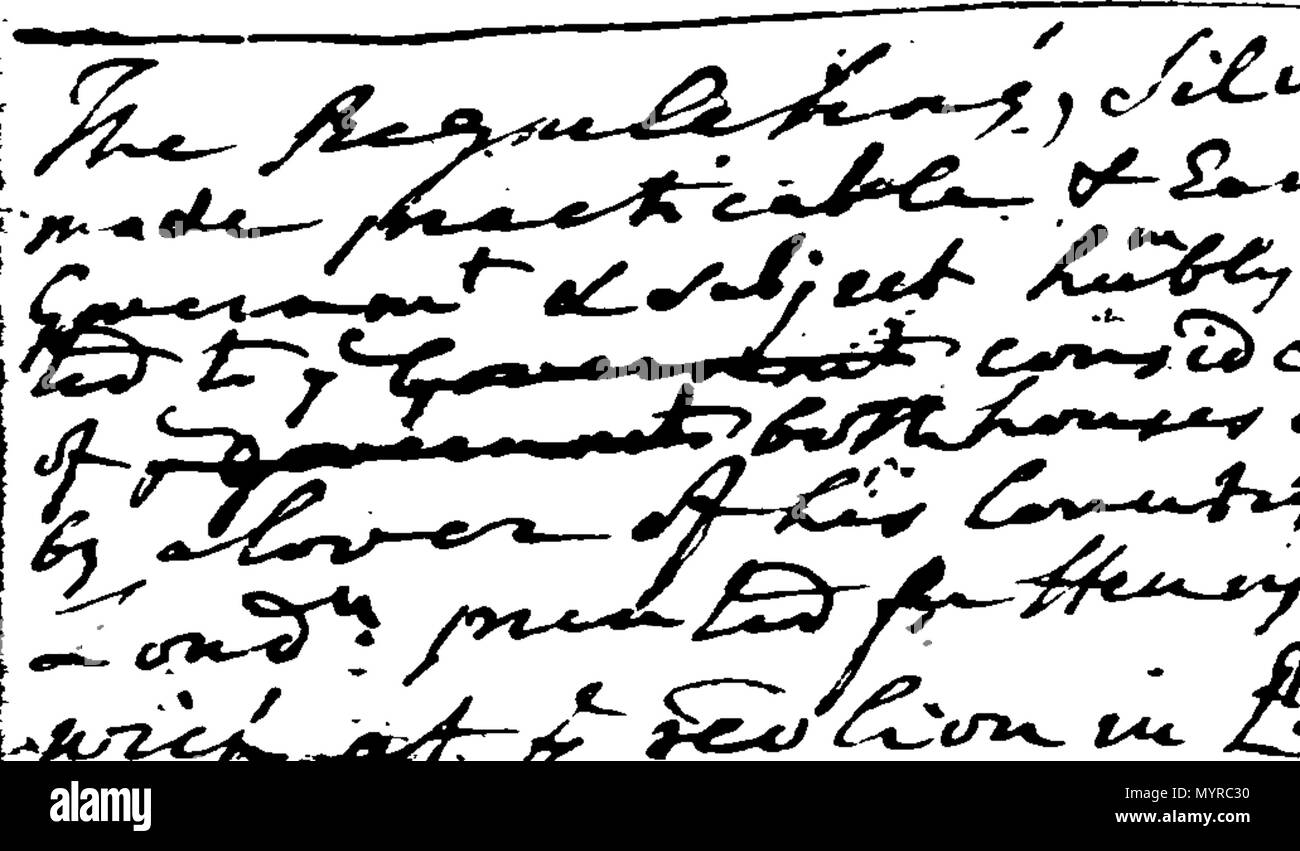 The Regulating Silv
made practicable & Eas
Governmt & subject humbly
ted to ye Government consid
of ye Governmts both houses
by a lover of his Countr
Londn printed for Henry
wich at ye red lion in
alamy
Image ID: MYRC30
www.alamy.com